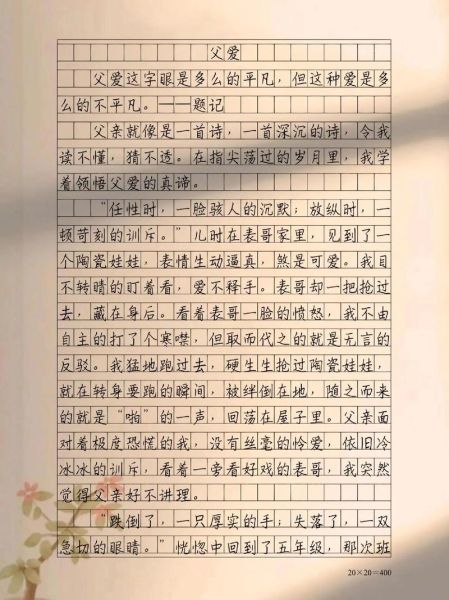 父爱
父爱这字眼是多么的平凡，但这种爱是多
么的不平凡。——题记
父亲就像是一首诗，一首深沉的诗，令我
读不懂，猜不透。在指尖荡过的岁月里，我学
着领悟父爱的真谛。
“任性时，一脸骇人的沉默；放纵时，一
顿苛刻的训斥。”儿时在表哥家里，见到了一
个陶瓷娃娃，表情生动逼真，煞是可爱。我目
不转睛的盯着看，爱不释手。表哥却一把抢过
去，藏在身后。看着表哥一脸的愤怒，我不由
自主的打了个寒噤，但取而代之的就是无言的
反驳。我猛地跑过去，硬生生抢过陶瓷娃娃，
就在转身要跑的瞬间，被绊倒在地，随之而来
的就是“啪”的一声，回荡在屋子里。父亲面
对着极度恐慌的我，没有丝毫的怜爱，依旧冷
冰冰的训斥，看着一旁看好戏的表哥，我突然
觉得父亲好不讲理。
“跌倒了，一只厚实的手；失落了，一双
急切的眼睛。”恍惚中回到了五年级，那次班
20×20=400